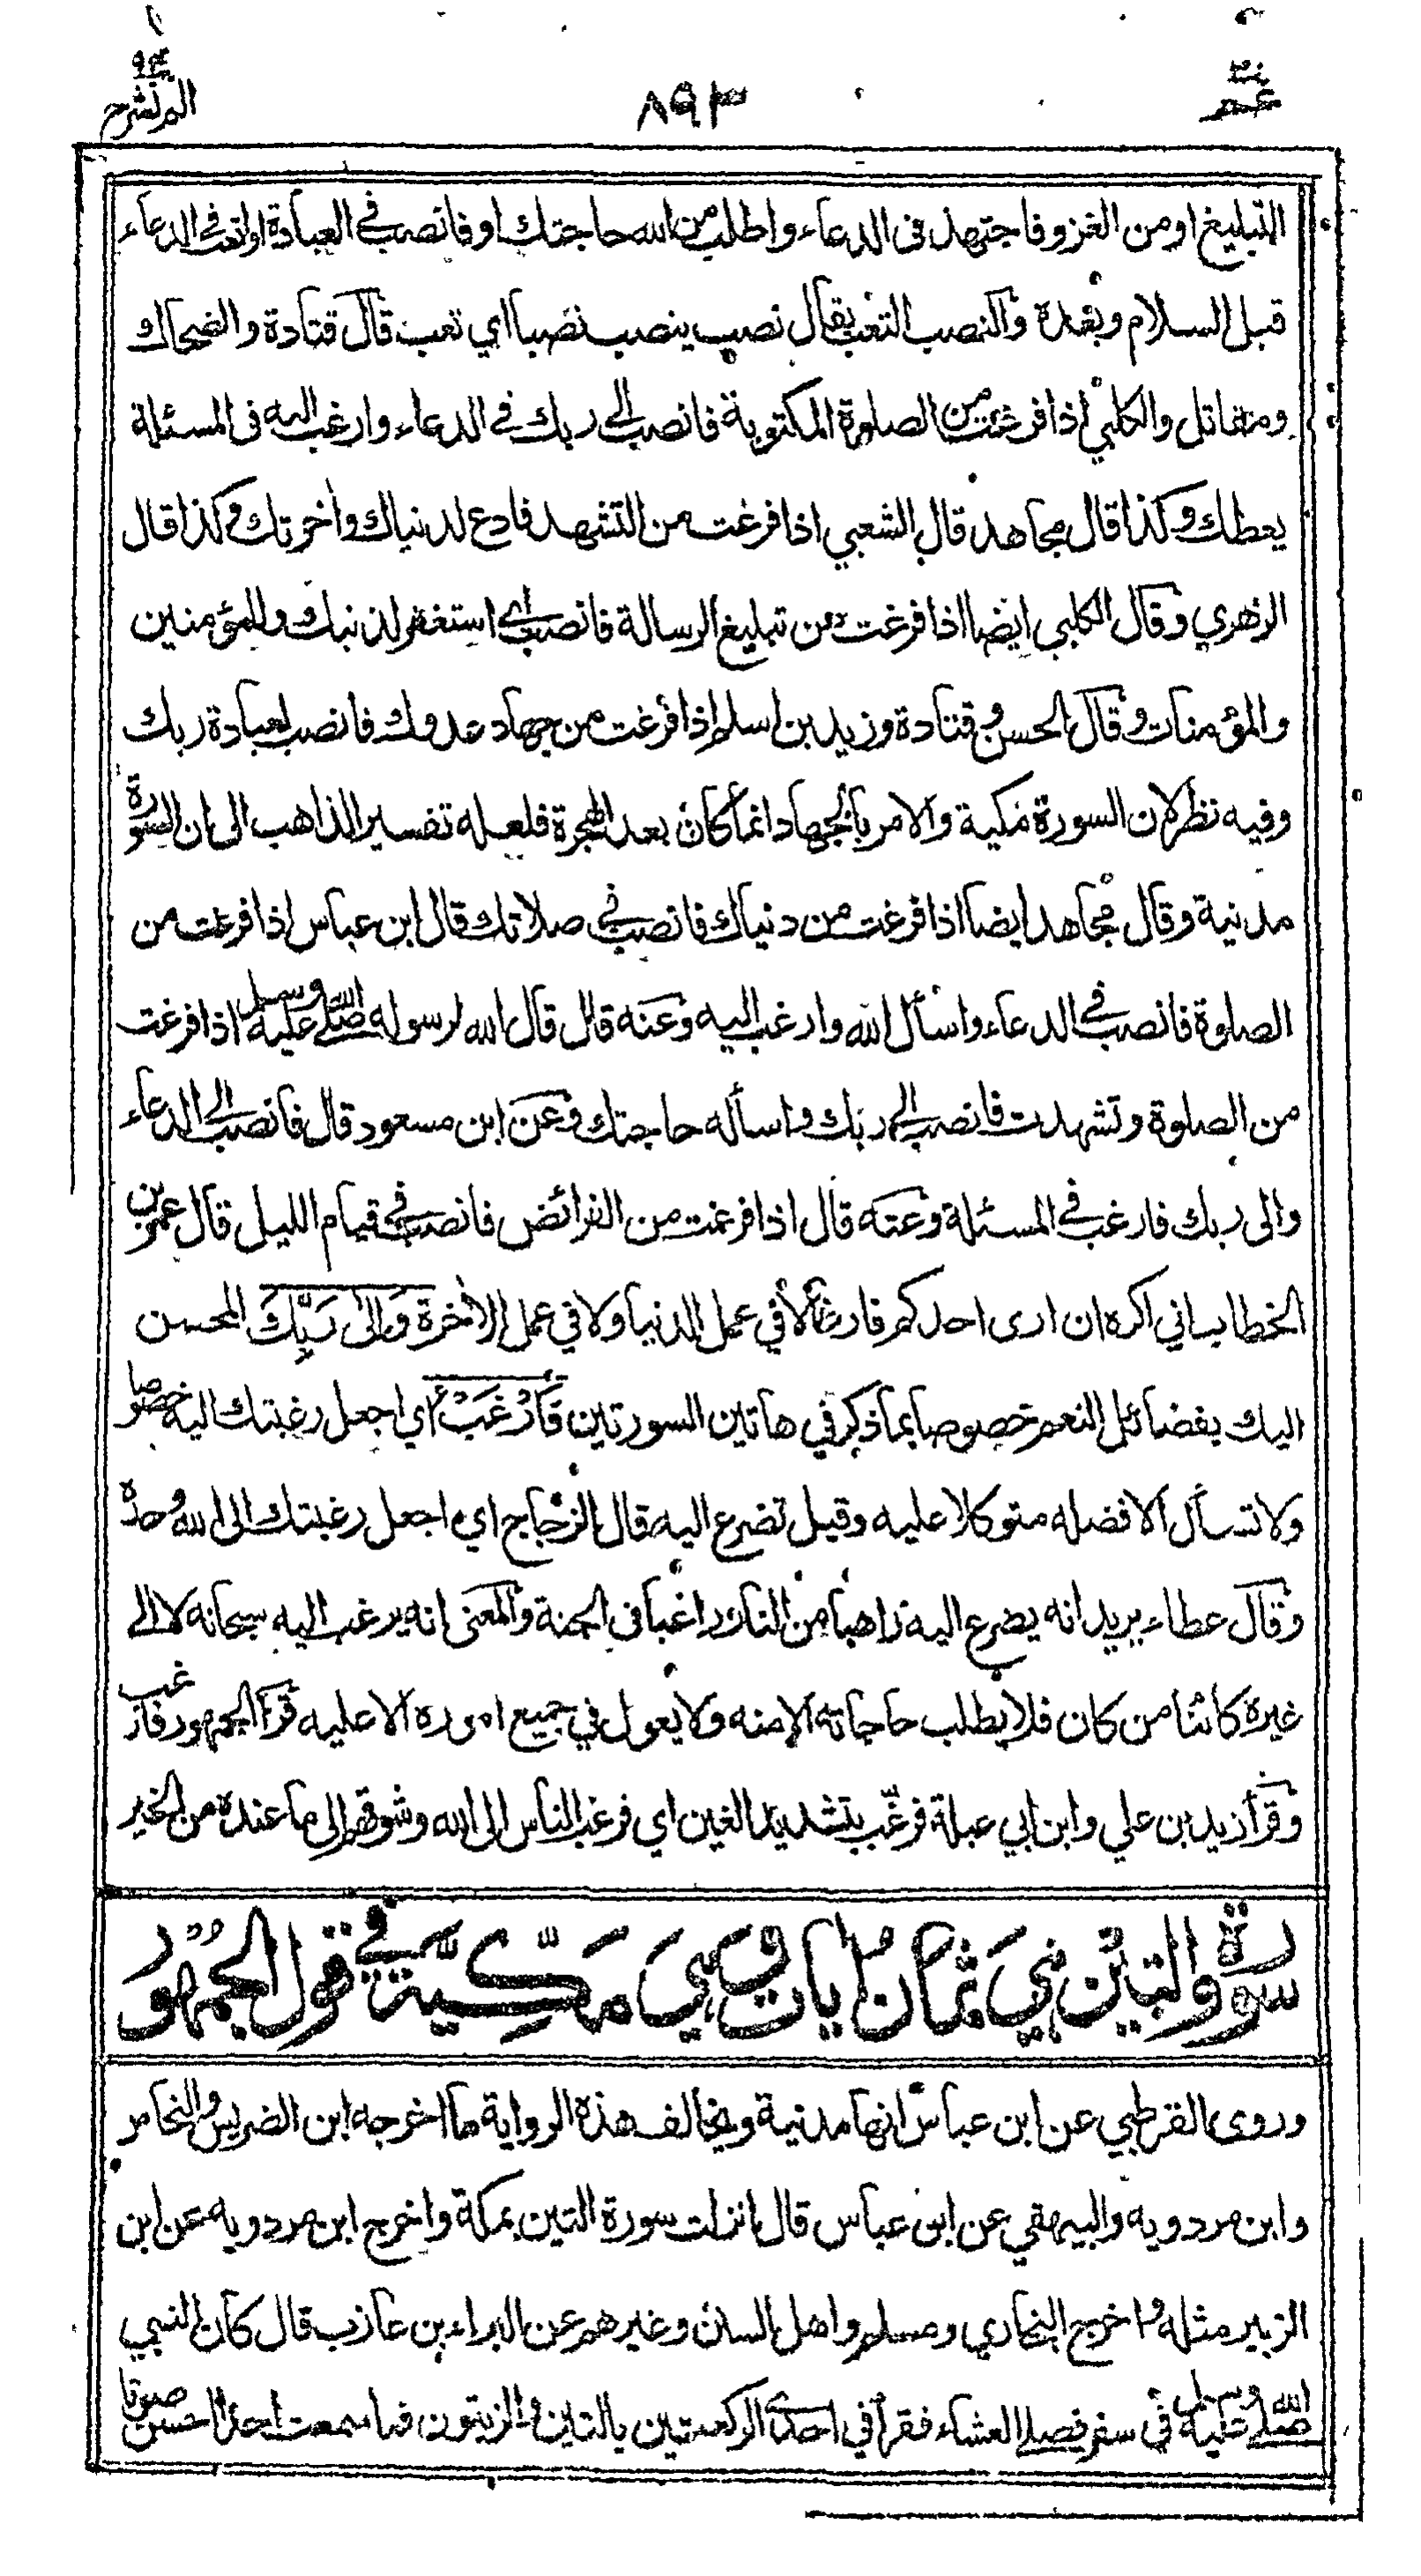 عم
٨٩٣
٩٤
الم نشرح
التبليغ او من الغزو فاجتهد فى الدعاء واطلب من الله حاجتك او فانصب في العبادة او اتعب في الدعاء
قبل السلام وبعده والنصب التعب يقال نصب ينصب نصبا اي تعب قال قتادة والضحاك
ومقاتل والكلبي اذا فرغت من الصلوة المكتوبة فانصب الى ربك في الدعاء وارغب اليه فى المسئلة
يعطك وكذا قال مجاهد قال الشعبي اذا فرغت من التشهد فادع لدنياك واخرتك وكذا قال
الزهري وقال الكلبي ايضا اذا فرغت من تبليغ الرسالة فانصب اي استغفر لذنبك وللمؤمنين
والمؤمنات وقال الحسن وقتادة وزيد بن اسلم اذا فرغت من جهاد عدوك فانصب لعبادة ربك
وفيه نظر لان السورة مكية والامر بالجهاد انما كان بعد الهجرة فلعله تفسير الذاهب الى ان السورة
مدنية وقال مجاهد ايضا اذا فرغت من دنياك فانصب في صلاتك قال ابن عباس اذا فرغت من
الصلوة فانصب في الدعاء واسأل الله وارغب اليه وعنه قال قال الله لرسوله صلى الله عليه وسلم اذا فرغت
من الصلوة وتشهدت فانصب الى ربك واسأله حاجتك وعن ابن مسعود قال فانصب الى الدعاء
والى ربك فارغب في المسئلة وعنه قال اذا فرغت من الفرائض فانصب في قيام الليل قال عمر بن
الخطاب اني اكره ان ارى احدكم فارغا لا في عمل الدنيا ولا في عمل الاخرة وَاِلىٰ رَبِّكَ المحسن
اليك بفضائل النعم خصوصا بما ذكر في هاتين السورتين فَارْغَبْ اي اجعل رغبتك اليه خصوصا
ولا تسأل الا فضله متوكلا عليه وقيل تضرع اليه قال الزجاج اي اجعل رغبتك الى الله وحده
وقال عطاء يريد انه يضرع اليه راهبا من النار راغبا في الجنة والمعنى انه يرغب اليه سبحانه لا الى
غيره كائنا من كان فلا يطلب حاجاته الا منه ولا يعول في جميع اموره الا عليه قرأ الجمهور فارغب
وقرأ زيد بن علي وابن ابي عبلة فرغّب بتشديد الغين اي فرغب الناس الى الله وشوقهم الى ما عنده من الخير
سورة والتين هي ثمان ايات وهي مكية في قول الجمهور
وروى القرطبي عن ابن عباس انها مدنية ويخالف هذه الرواية ما اخرجه ابن الضريس والنحاس
وابن مردويه والبيهقي عن ابن عباس قال انزلت سورة التين بمكة واخرج ابن مردويه عن ابن
الزبير مثله واخرج البخاري ومسلم واهل السنن وغيرهم عن البراء بن عازب قال كان النبي
صلى الله عليه وسلم في سفر فصلى العشاء فقرأ في احدى الركعتين بالتين والزيتون فما سمعت احدا احسن صوتا